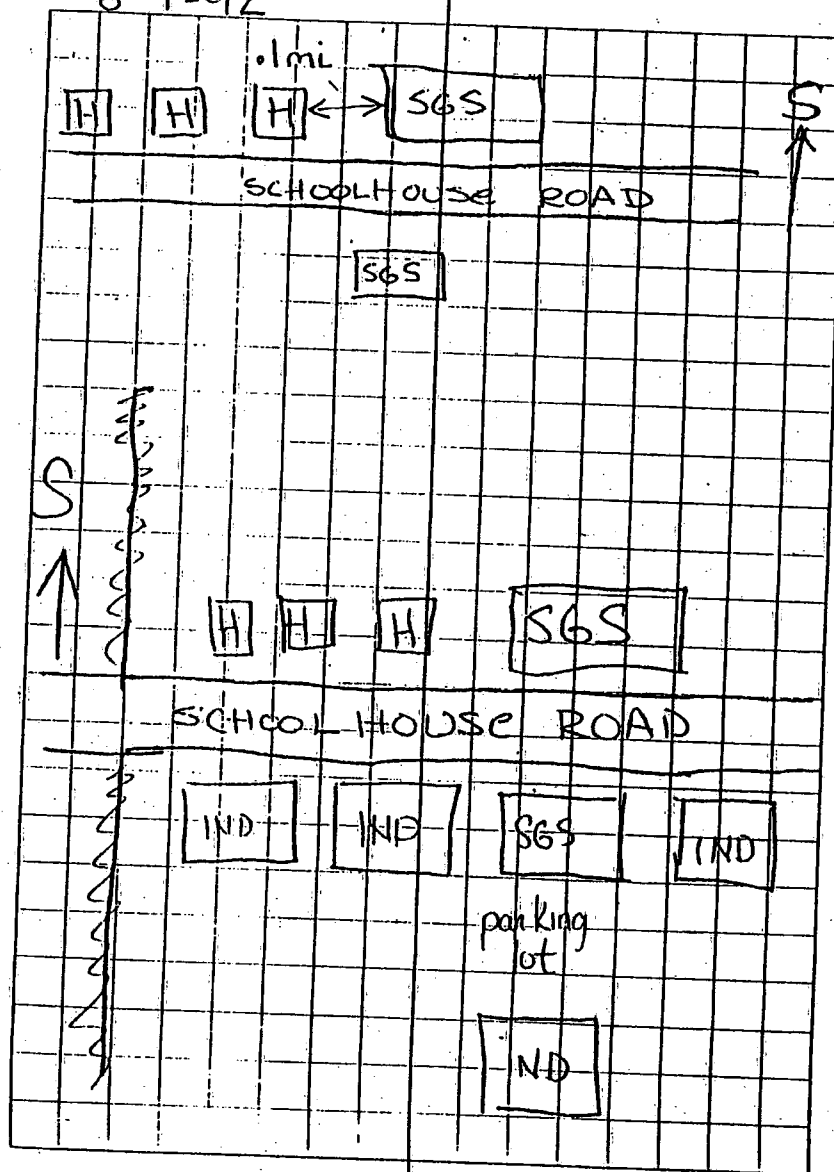 .1mi
H H H SGS S
SCHOOLHOUSE ROAD
SGS
S
H H H SGS
SCHOOLHOUSE ROAD
IND IND SGS IND
parking
ot
ND